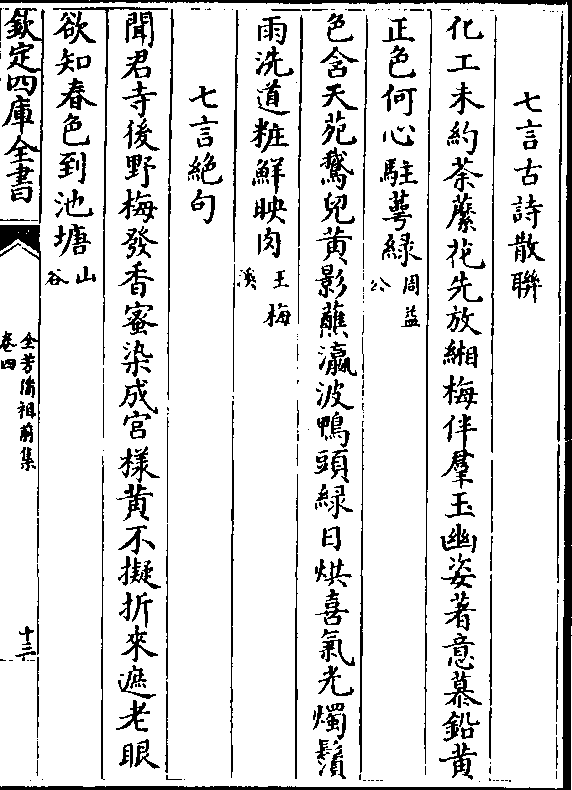 七言古詩散聯
化工未約荼蘼花先放緗梅伴羣玉幽姿著意慕鉛黄
正色何心駐萼緑周益公
色含天苑鵞兒黄影蘸瀛波鴨頭緑日烘喜氣光燭鬚
雨洗道粧鮮映肉王梅溪
七言絶句
聞君寺後野梅發香蜜染成宫樣黄不擬折來遮老眼
欲知春色到池塘山谷
欽定四庫全書
全芳備祖前集
卷四
十三